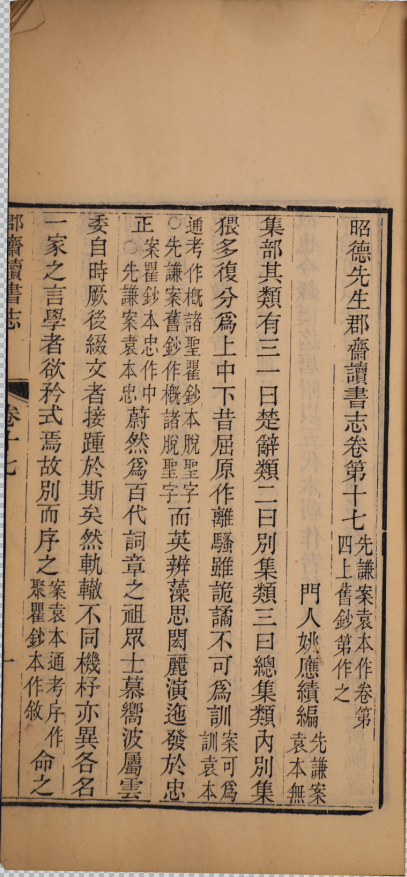 昭德先生郡齋讀書志卷第十七先謙案袁本作卷第四上舊鈔第作之
門人姚應績編先謙案袁本無
集部其類有三一曰楚辭類二曰別集類三曰總集類內別集
猥多復分爲上中下昔屈原作離騷雖詭譎不可爲訓案可爲訓袁本
通考作概諸聖瞿鈔本脫聖字○先謙案舊鈔作概諸脫聖字而英辨藻思閎麗演迤發於忠
正案瞿鈔本忠作中○先謙案袁本忠蔚然爲百代詞章之祖眾士慕嚮波屬雲
委自時厥後綴文者接踵於斯矣然軌轍不同機杼亦異各名
一家之言學者欲矜式焉故別而序之案袁本通考序作聚瞿鈔本作敘命之
郡齋讀書志 卷十七 一